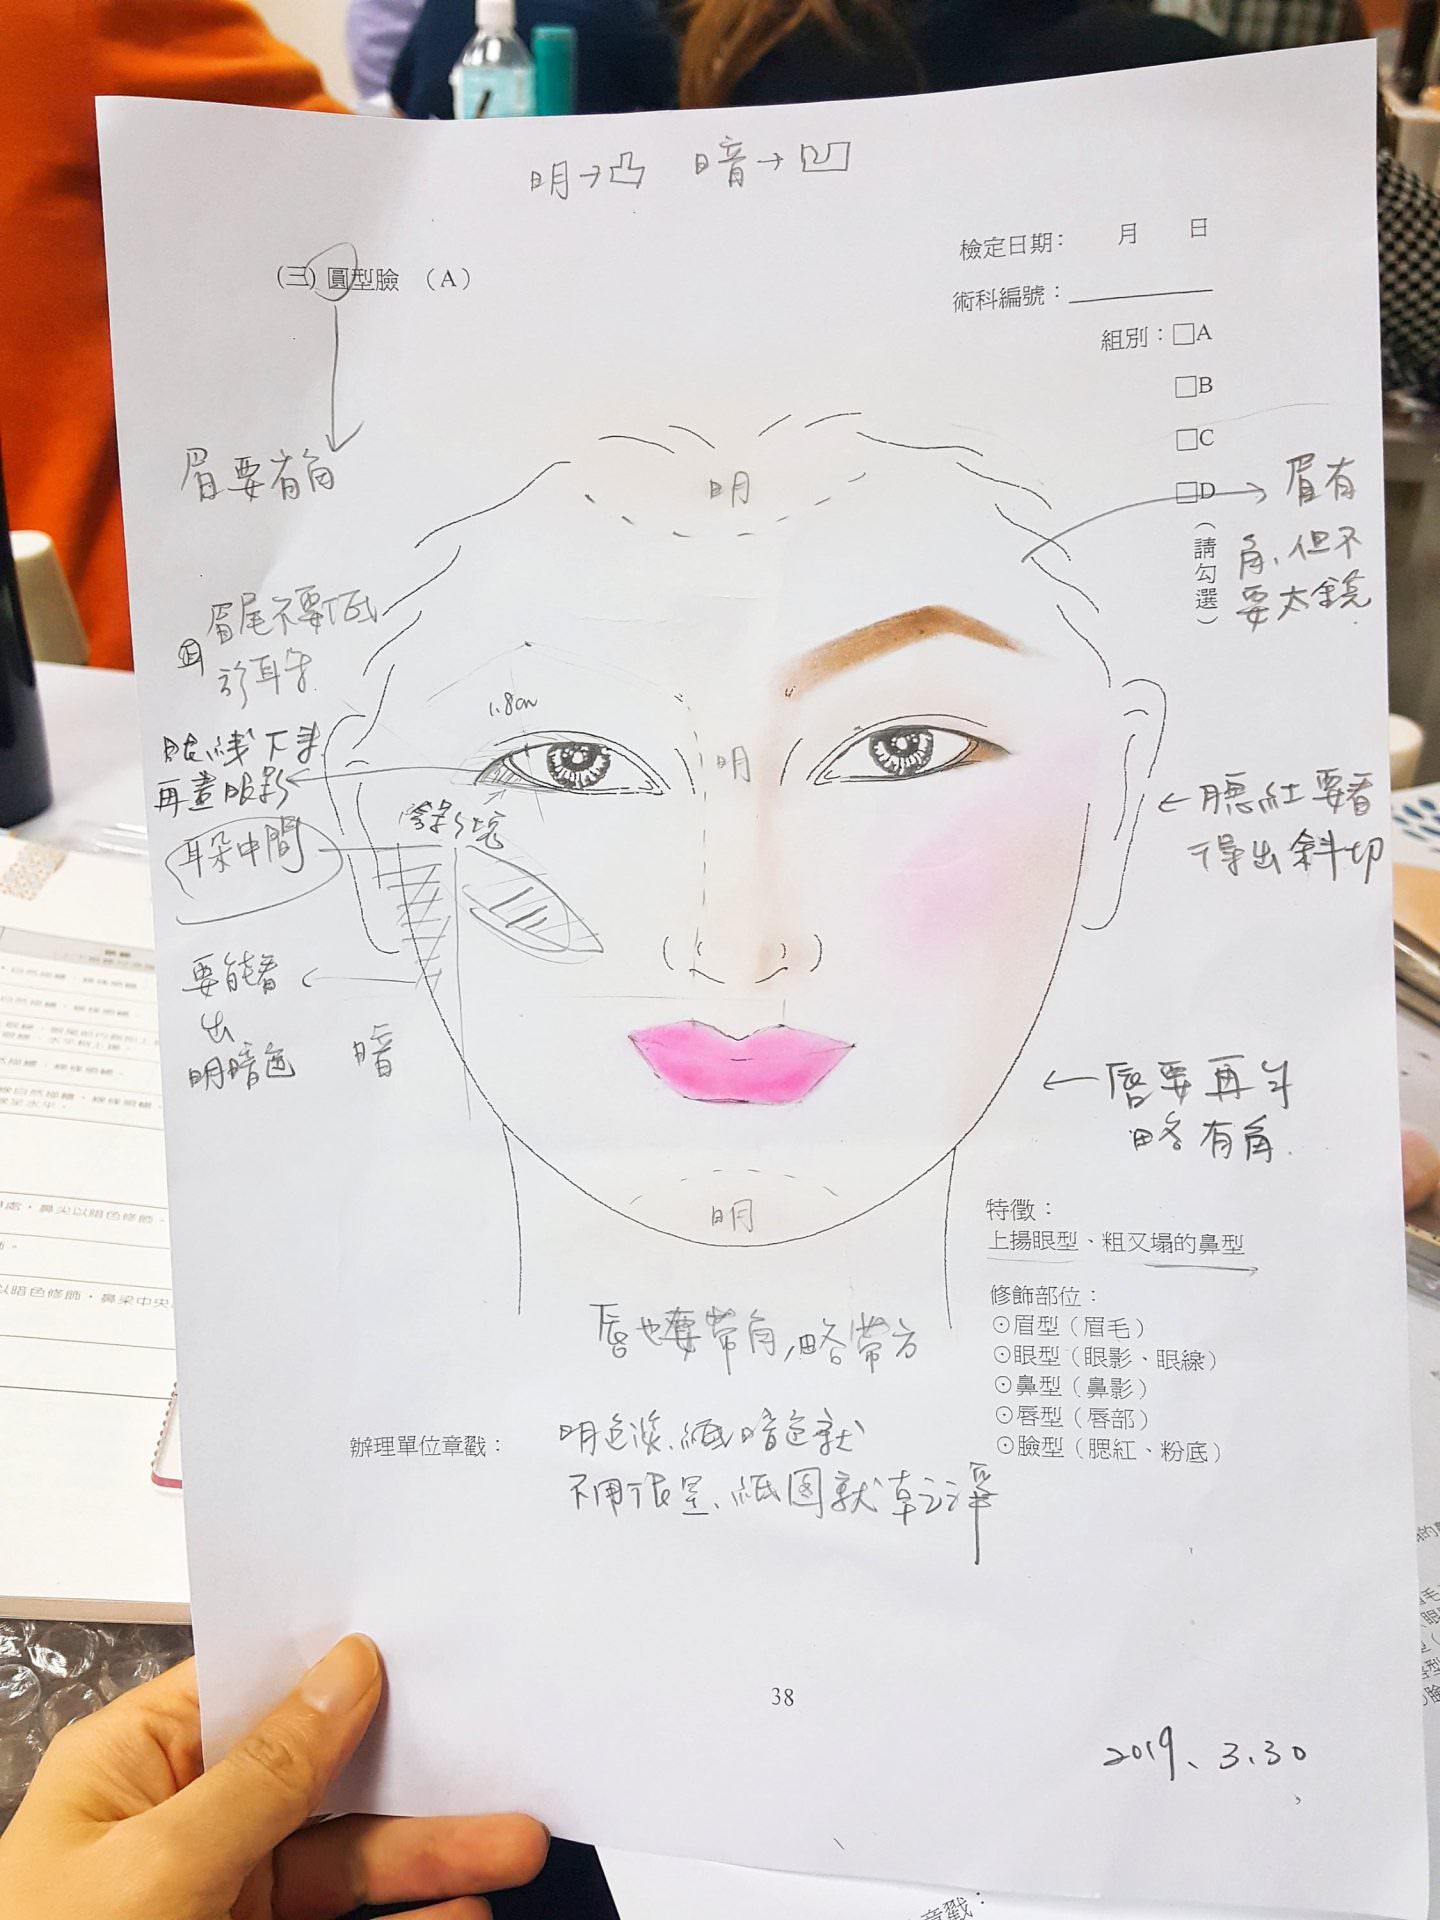 明→凸 暗→凹
檢定日期： 月 日
(三) 圓型臉 （A）
術科編號：
組別：□A
□B
□C
□D
（請勾選）
眉要有角
眉有
角，但不
要太銳
眉尾不要低
於耳朵
明
1.8cm
眼線下手
再畫眼影
明
耳朵中間
腮紅要看
得出斜切
要能看
出
明暗色
暗
唇要再平
略有角.
明
特徵：
上揚眼型、粗又塌的鼻型
修飾部位：
⊙眉型（眉毛）
⊙眼型（眼影、眼線）
⊙鼻型（鼻影）
⊙唇型（唇部）
⊙臉型（腮紅、粉底）
唇也要帶角，略帶方
辦理單位章戳：
明色淡、紙暗色就
不用很 、紙圖就
38
2019、3.30
章戳：